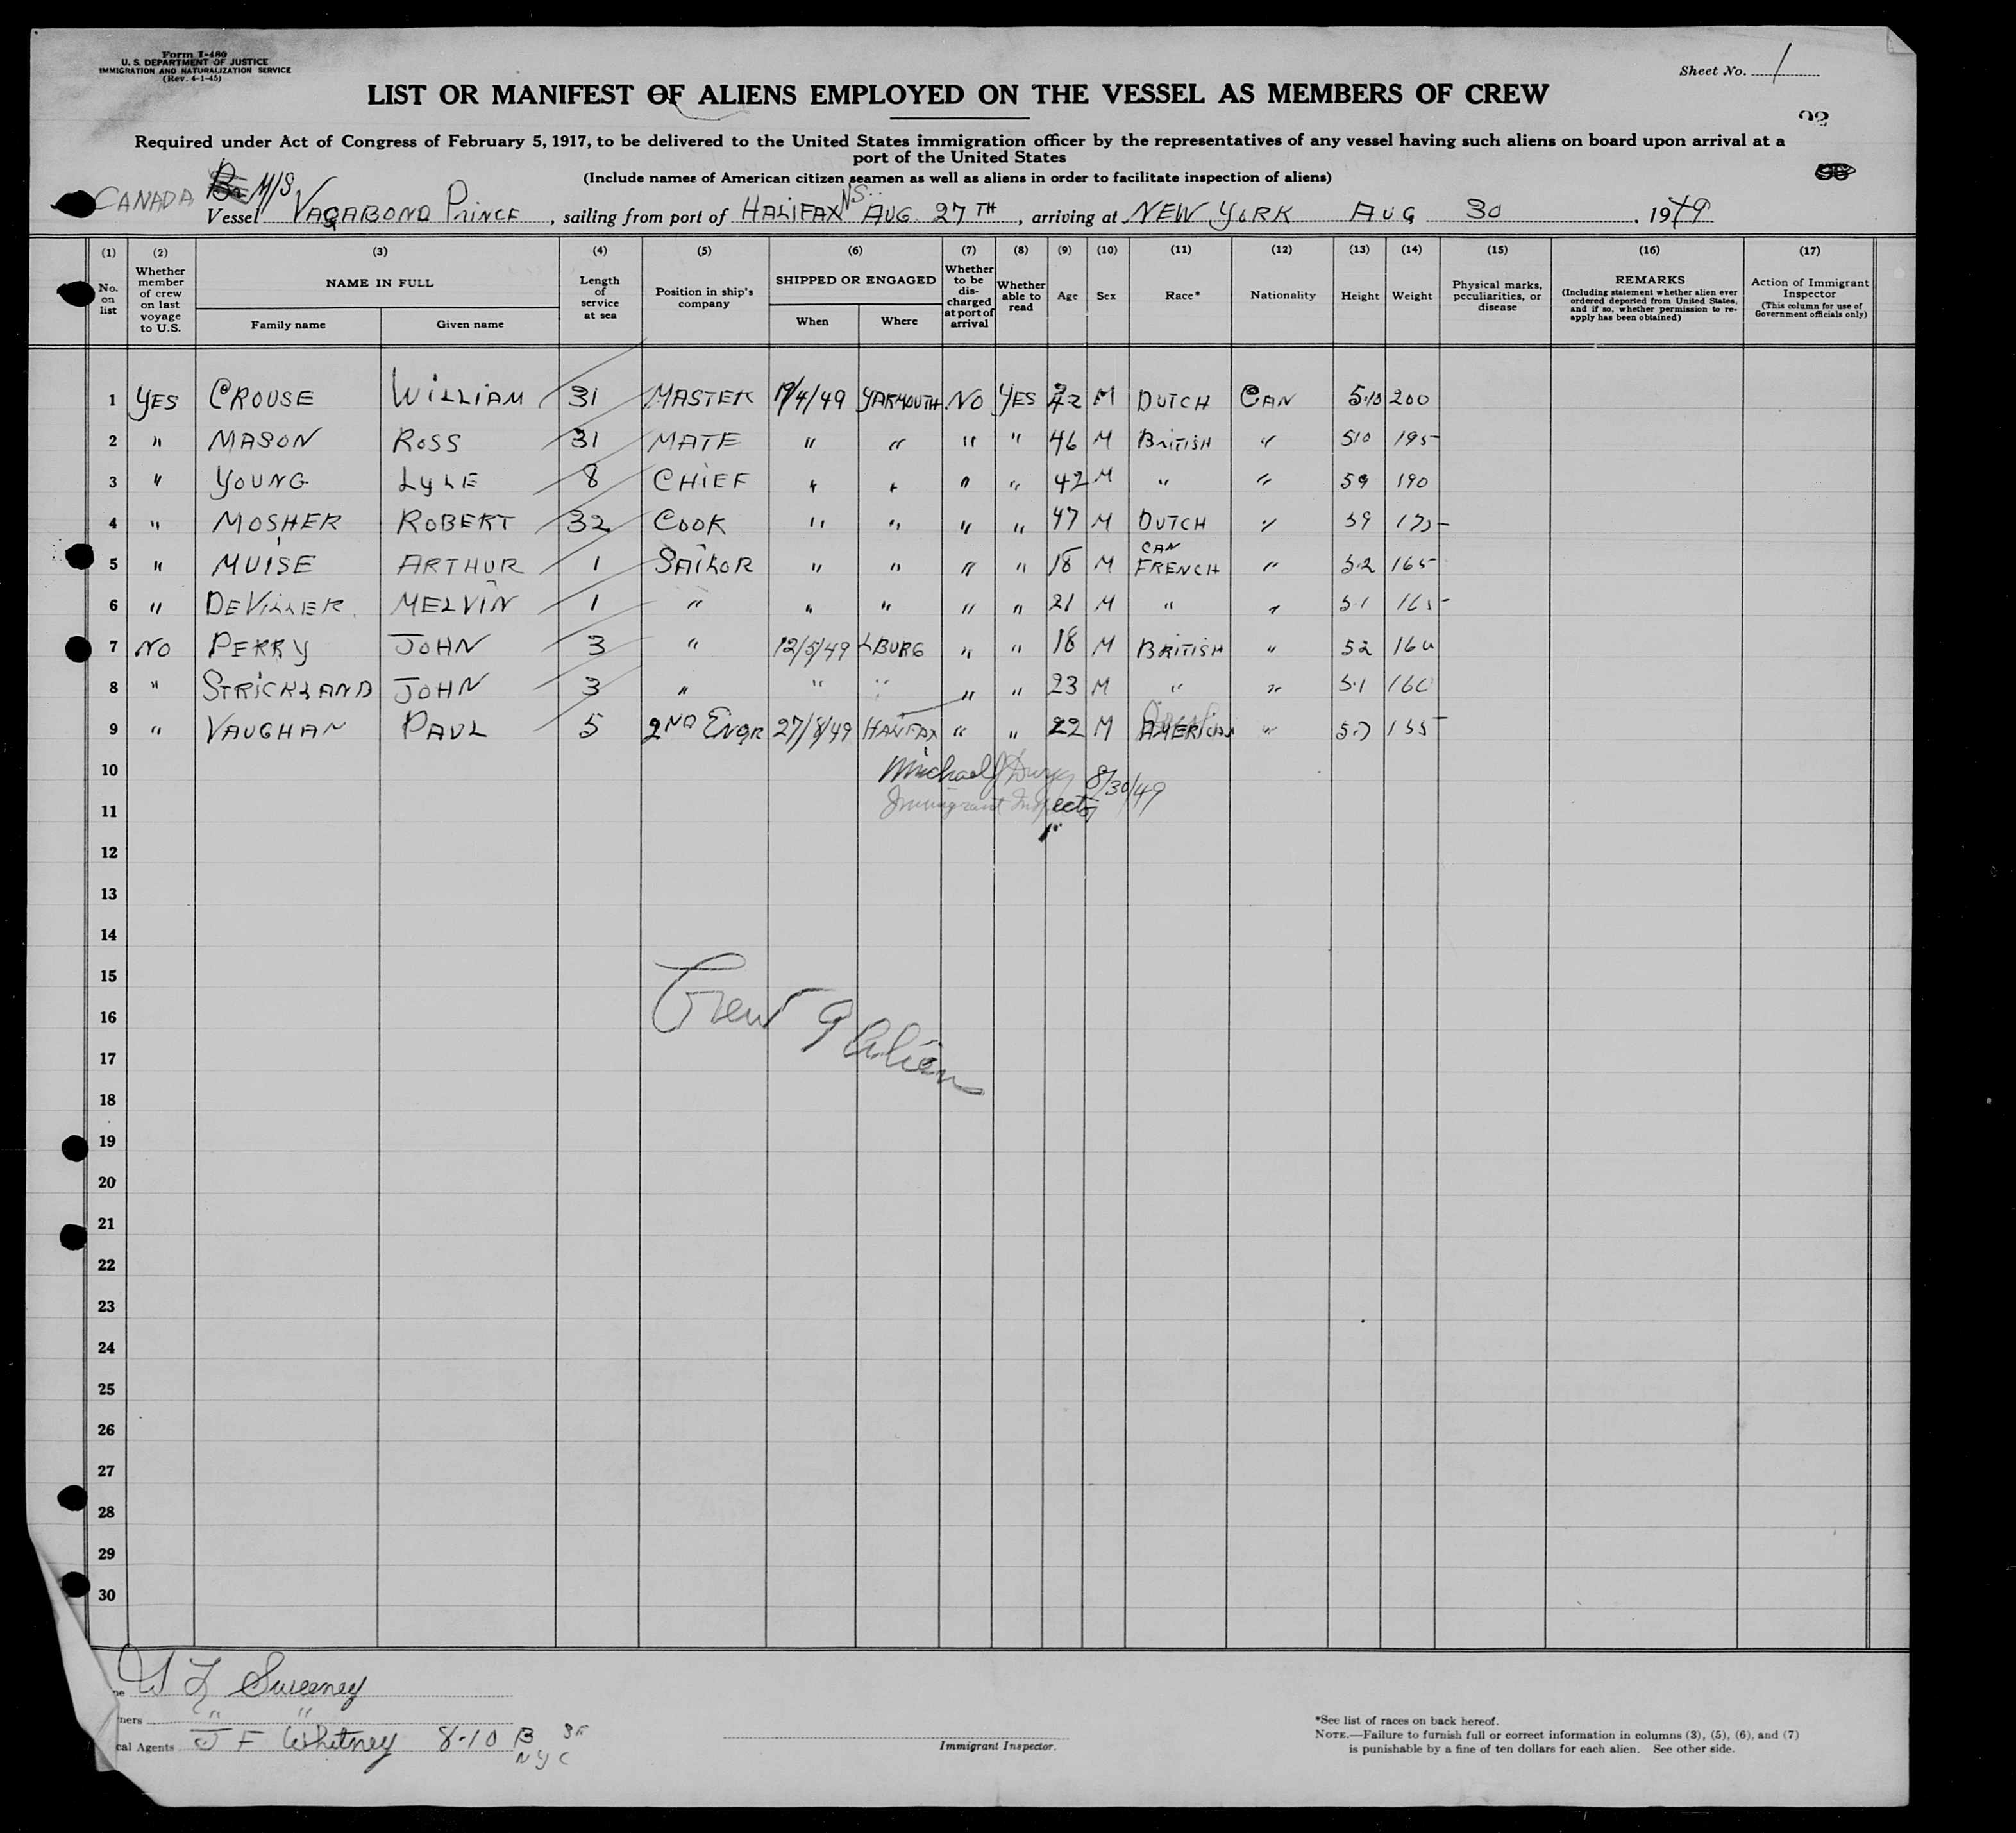 Form I-480
U. S. DEPARTMENT OF JUSTICE
IMMIGRATION AND NATURALIZATION SERVICE
(Rev. 4-1-45)
Sheet No. 1
LIST OR MANIFEST OF ALIENS EMPLOYED ON THE VESSEL AS MEMBERS OF CREW
Required under Act of Congress of February 5, 1917, to be delivered to the United States immigration officer by the representatives of any vessel having such aliens on board upon arrival at a
port of the United States
(Include names of American citizen seamen as well as aliens in order to facilitate inspection of aliens)
CANADA Br M/S
Vessel VAGABOND PRINCE, sailing from port of HALIFAX NS AUG. 27TH, arriving at NEW YORK AUG 30, 1949
(1) (2) (3) (4) (5) (6) (7) (8) (9) (10) (11) (12) (13) (14) (15) (16) (17)
No. on list
Whether member of crew on last voyage to U.S.
NAME IN FULL
Family name
Given name
Length of service at sea
Position in ship's company
SHIPPED OR ENGAGED
When
Where
Whether to be discharged at port of arrival
Whether able to read
Age
Sex
Race*
Nationality
Height
Weight
Physical marks, peculiarities, or disease
REMARKS
(Including statement whether alien ever ordered deported from United States, and if so, whether permission to re-apply has been obtained)
Action of Immigrant Inspector
(This column for use of Government officials only)
1 YES CROUSE WILLIAM 31 MASTER 19/4/49 YARMOUTH NO YES 42 M DUTCH CAN 5.10 200
2 " MASON ROSS 31 MATE " " " " 46 M BRITISH " 510 195
3 " YOUNG LYLE 8 CHIEF " " " " 42 M " " 59 190
4 " MOSHER ROBERT 32 COOK " " " " 47 M DUTCH " 59 175
5 " MUISE ARTHUR 1 SAILOR " " " " 18 M CAN FRENCH " 5.2 165
6 " DEVILLER MELVIN 1 " " " " " 21 M " " 5.1 165
7 NO PERRY JOHN 3 " 12/5/49 LBURG " " 18 M BRITISH " 52 160
8 " STRICKLAND JOHN 3 " " " " " 23 M " " 5.1 160
9 " VAUGHAN PAUL 5 2ND ENGR 27/8/49 HALIFAX " " 22 M AMERICAN " 5.7 155
10 Michael J 8/30/49
11 Immigrant Inspector
12
13
14
15
16 Crew 9 Alien
17
18
19
20
21
22
23
24
25
26
27
28
29
30
W L Sweeney
ners " "
cal Agents J F Whitney 8-10 B
NYC
Immigrant Inspector.
*See list of races on back hereof.
NOTE.—Failure to furnish full or correct information in columns (3), (5), (6), and (7)
is punishable by a fine of ten dollars for each alien. See other side.